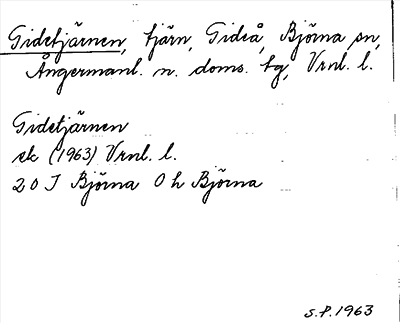 Gidetjärnen, tjärn, Gideå, Björna sn,
Ångermanl. n. doms. tg, Vrnl. l.
Gidetjärnen
ek (1963) Vrnl. l.
20 J Björna O h Björna
S.P. 1963